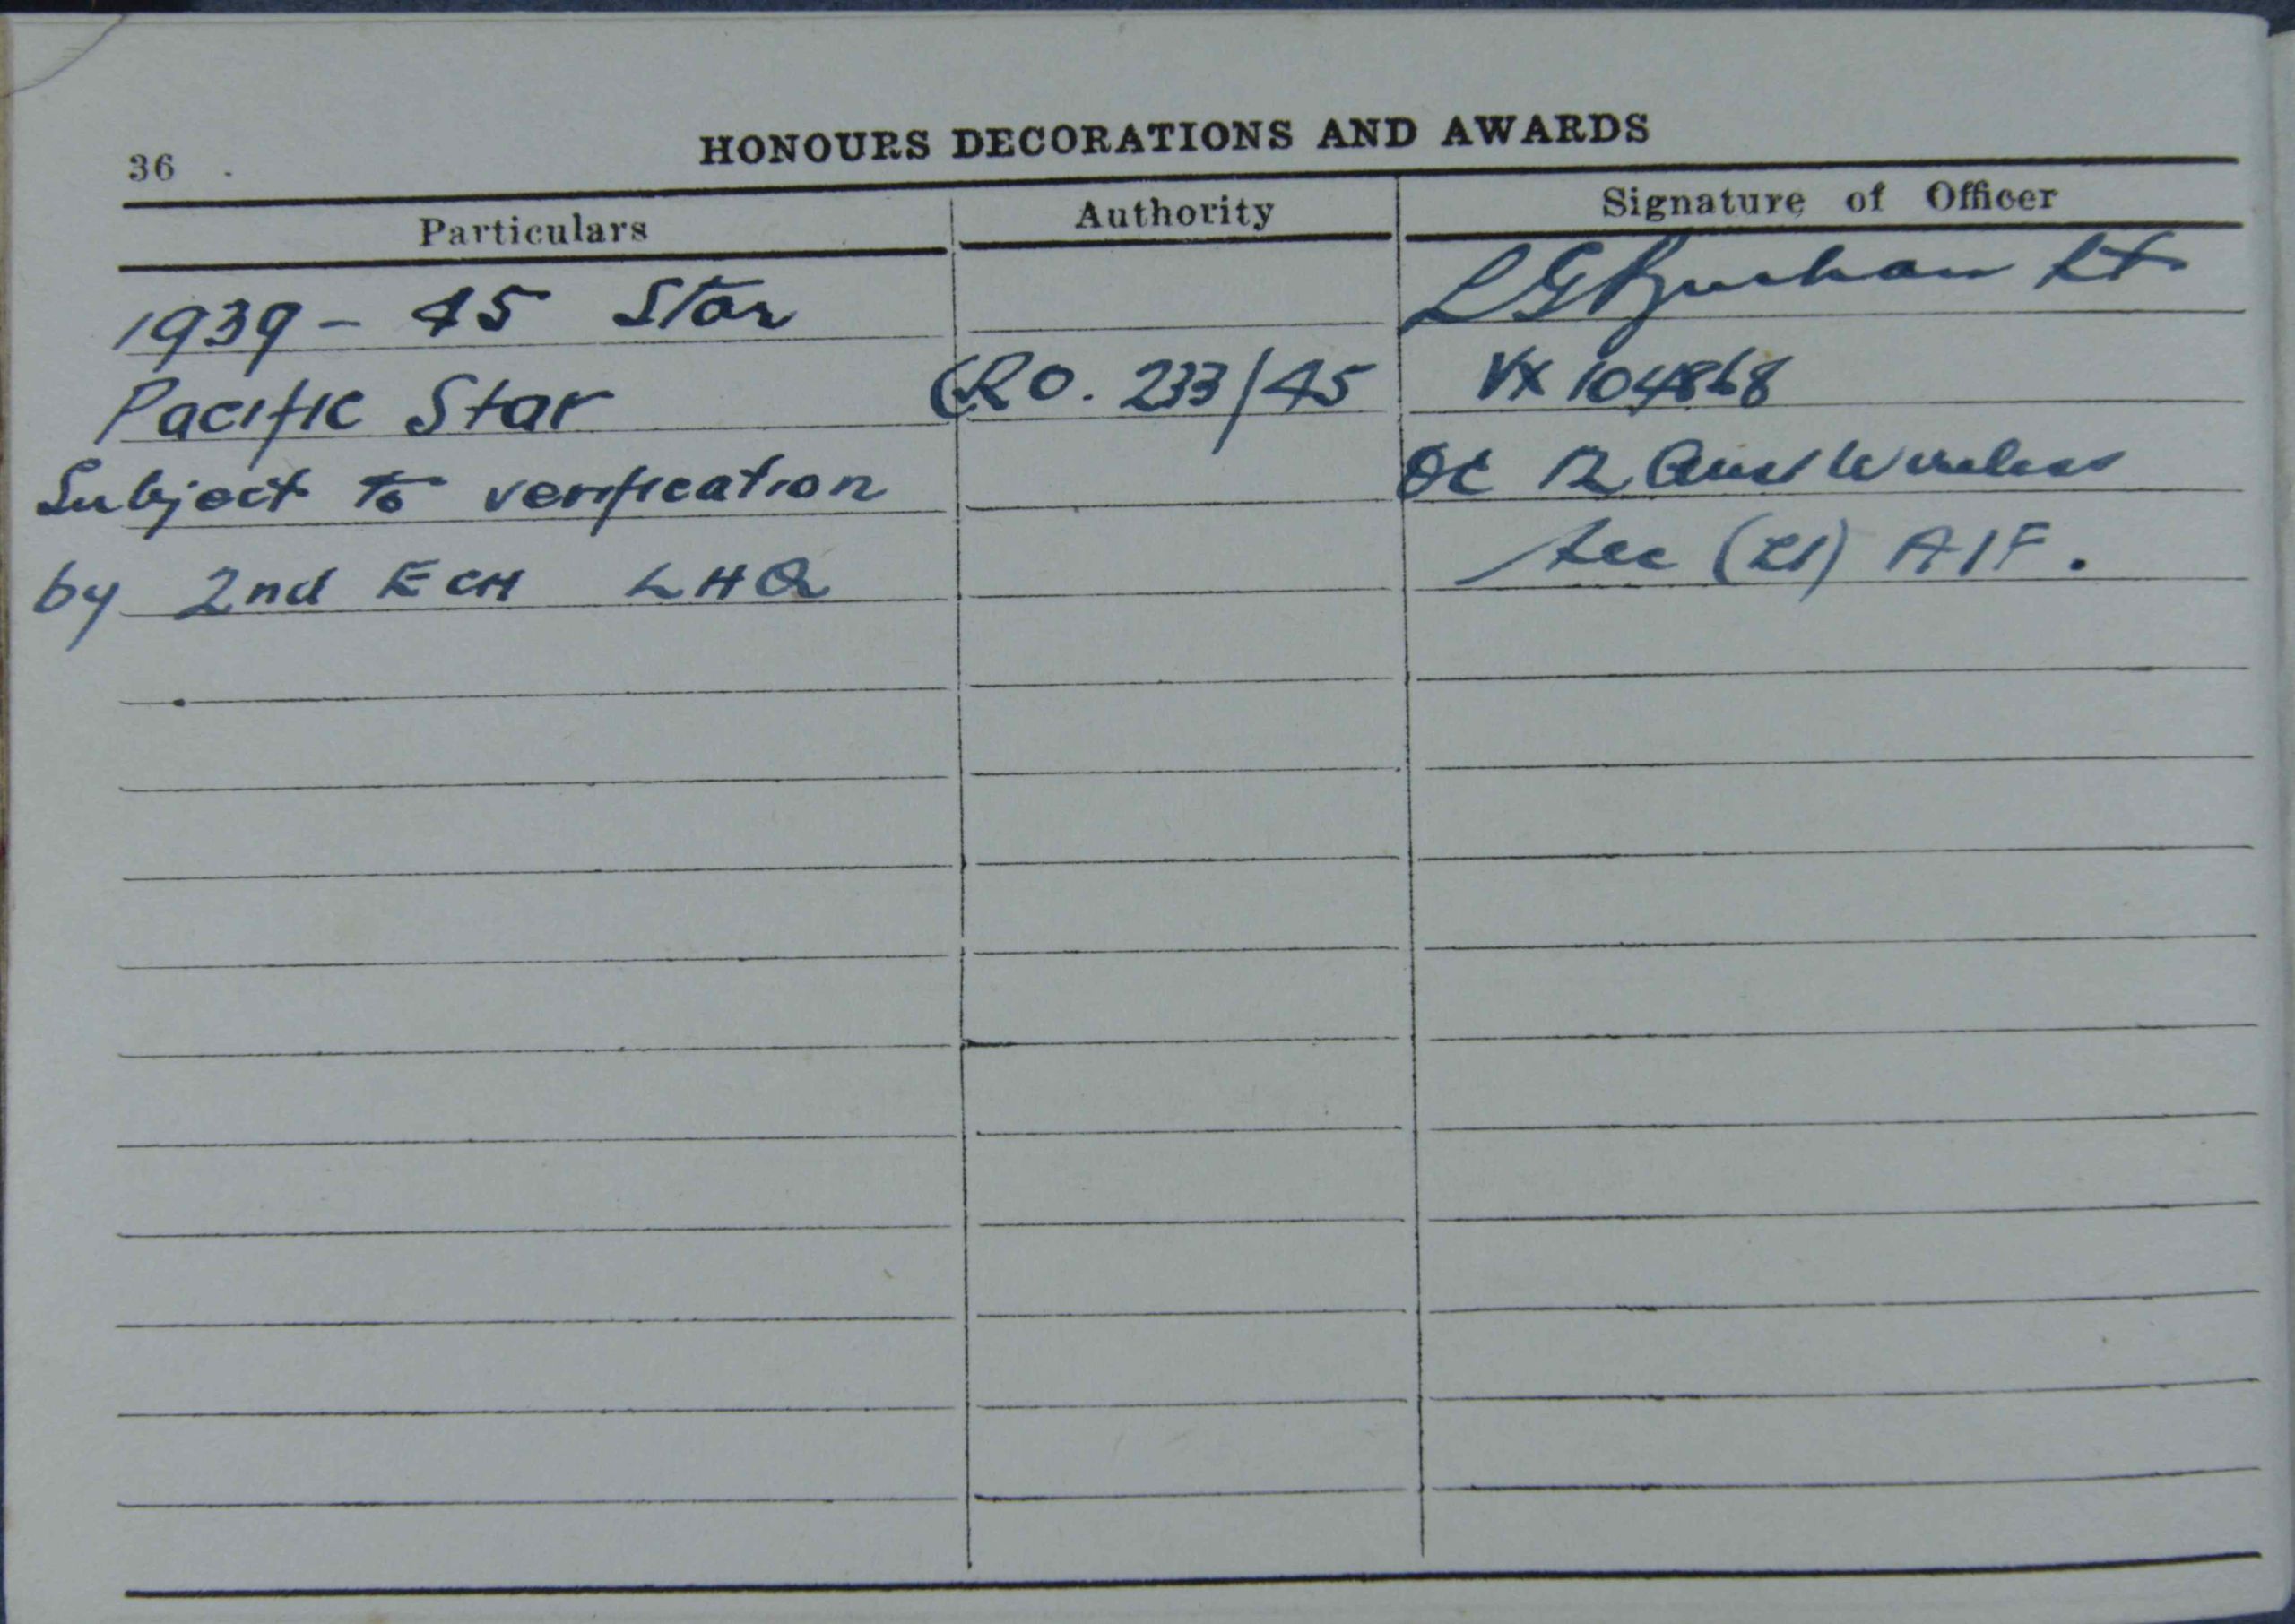 36
HONOURS DECORATIONS AND AWARDS
Particulars Authority Signature of Officer
1939 - 45 Star Lt
Pacific Star GRO. 233/45 VX 104868
Subject to verification OC 12 Aust Wireless
by 2nd ECH LHQ Sec A I F.